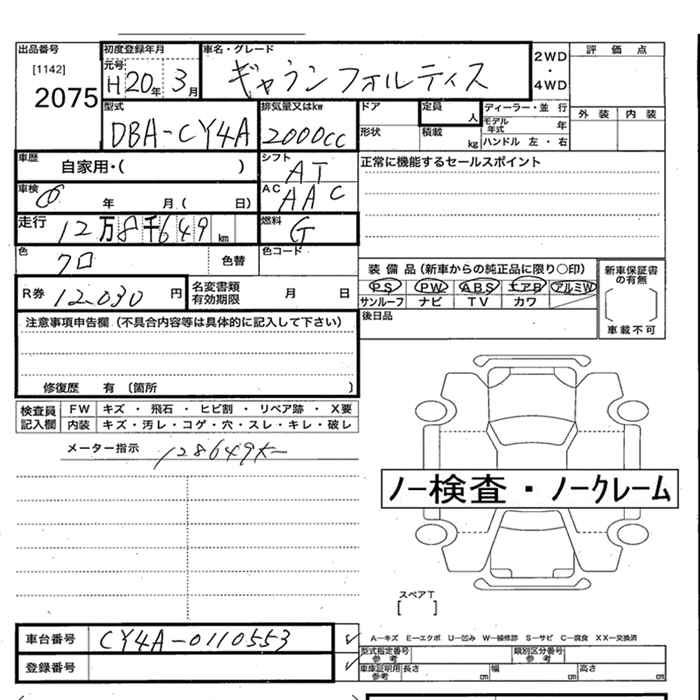 出品番号 初度登録年月 車名・グレード 2WD・4WD 評価点
[1142] 元号
2075 H20年 3月 ギャランフォルティス
外装 内装
型式 排気量又はkw ドア 定員 人 ディーラー・並行
DBA-CY4A 2000cc 形状 積載 kg モデル年式 年
ハンドル 左・右
車歴 自家用・( ) シフト AT 正常に機能するセールスポイント
車検 年 月( 日) AC AAC
走行 12万8千649km 燃料 G
色 クロ 色替 色コード
装備品(新車からの純正品に限り○印) 新車保証書の有無
R券 12,030円 名変書類有効期限 月 日 PS PW ABS エアB アルミW
サンルーフ ナビ TV カワ 車載不可
注意事項申告欄(不具合内容等は具体的に記入して下さい) 後日品
修復歴 有 (箇所 )
検査員記入欄 FW キズ・飛石・ヒビ割・リペア跡・X要
内装 キズ・汚レ・コゲ・穴・スレ・キレ・破レ
メーター指示 128649K
ノー検査・ノークレーム
スペアT
[ ]
車台番号 CY4A-0110553 A-キズ E-エクボ U-凹み W-補修跡 S-サビ C-腐食 XX-交換済
型式指定番号参考 類別区分番号参考
登録番号 車庫証明用参考 長さ cm 幅 cm 高さ cm